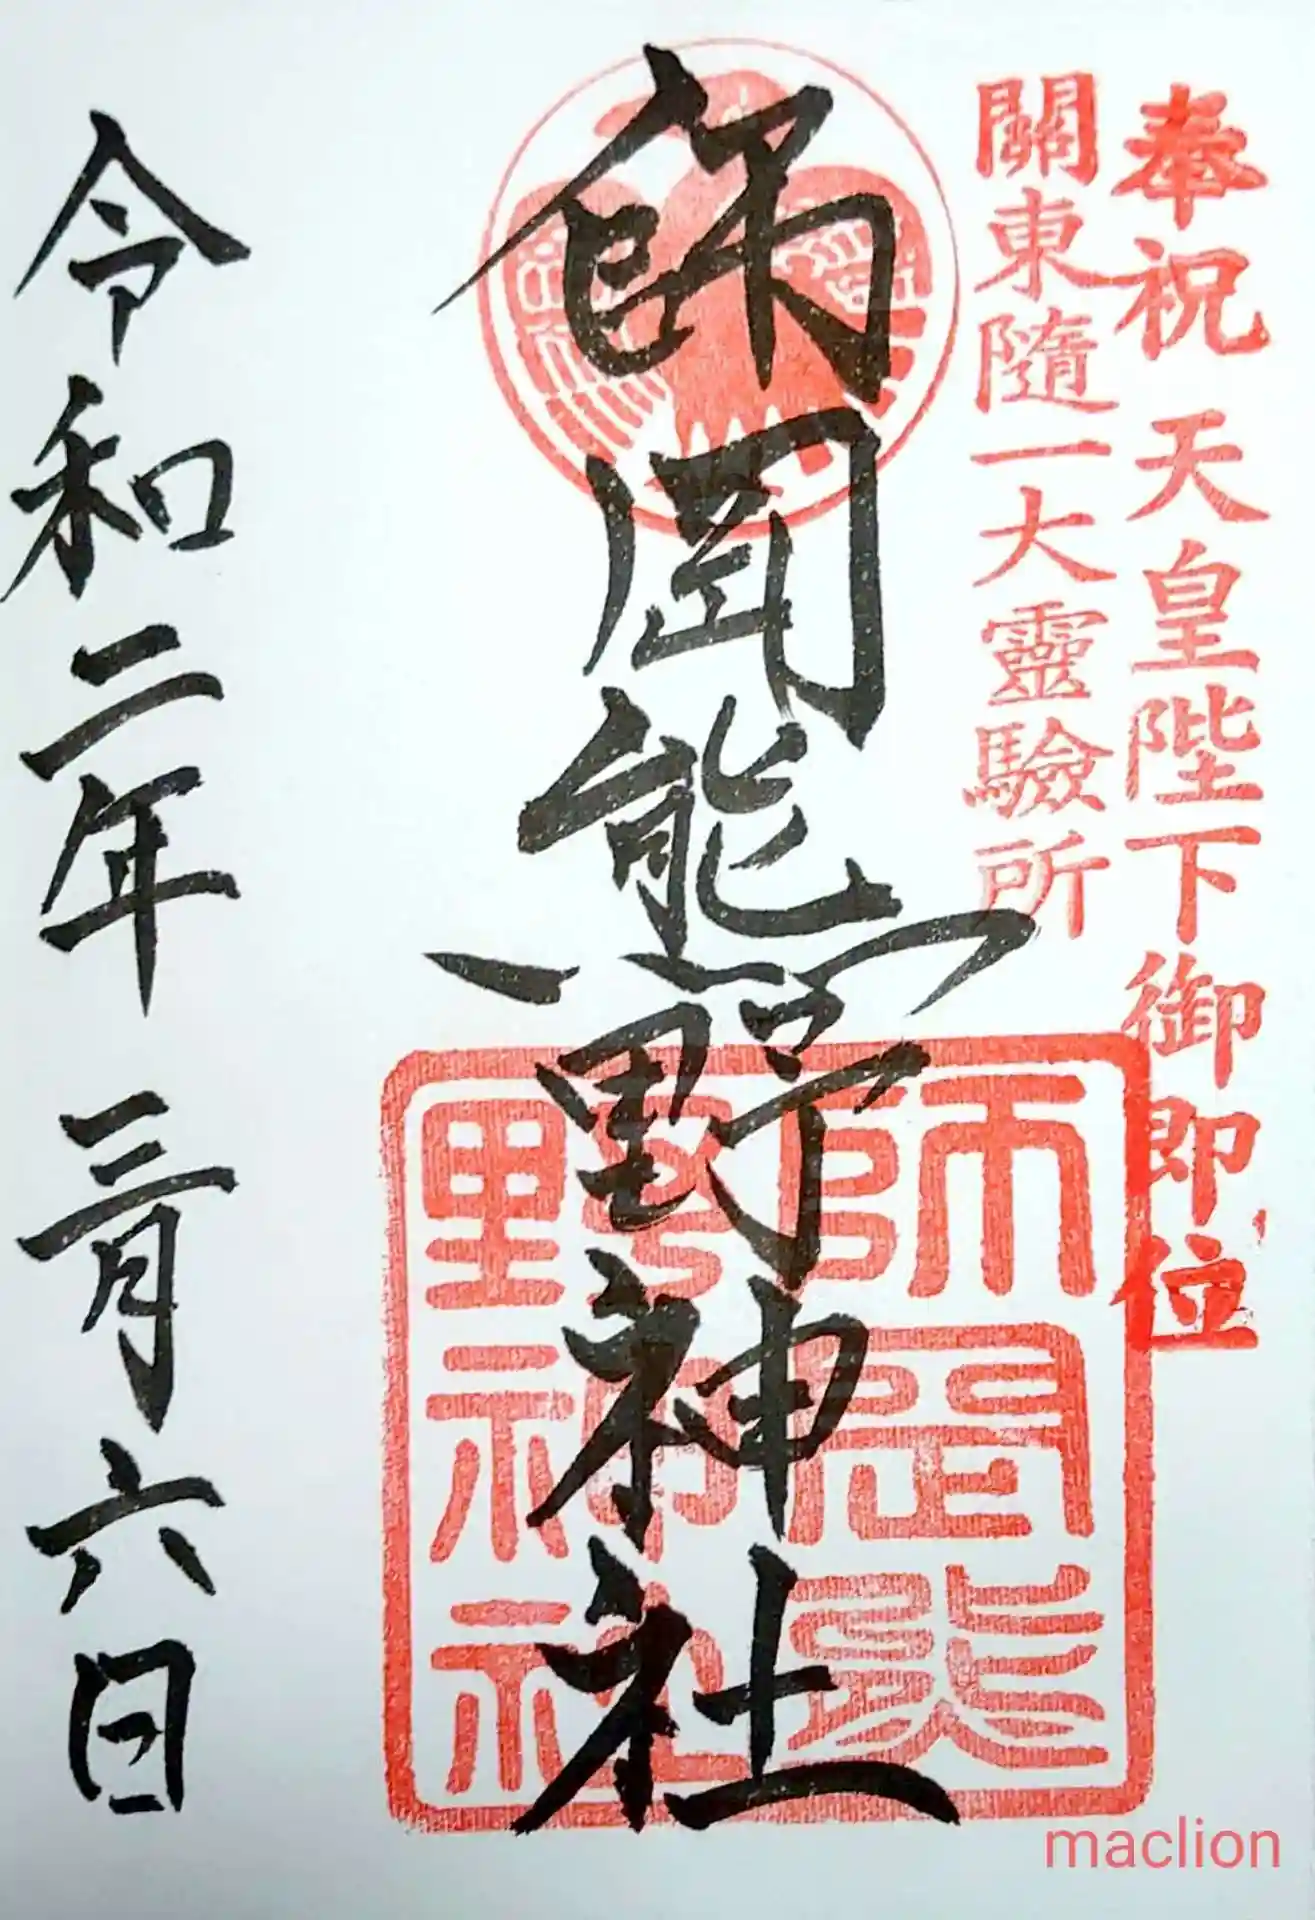 奉祝 天皇陛下御即位
關東隨一大靈驗所
師岡熊野神社
師岡熊
野神社
令和二年 三月六日
maclion